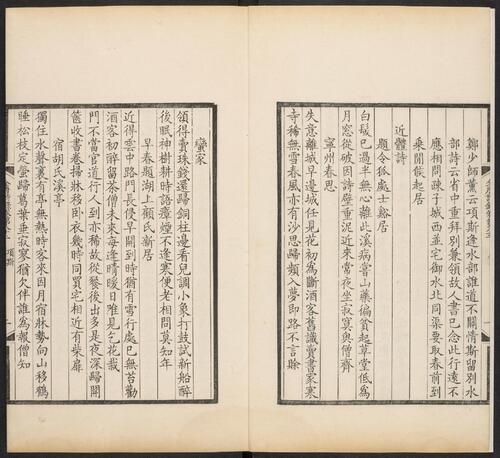 鄭少師薰云項斯逢水部誰道不關情斯留別水
部詩云省中重拜別兼領故人書已念此行遠不
應相問疎子城西並宅御水北同渠要取春前到
乘閒候起居
近體詩
題令狐處士谿居
白髮已過半無心離此溪病嘗山藥徧貧起草堂低為
月窓從破因詩壁重泥近來常夜坐寂寞與僧齊
寧州春思
失意離城早邊城任見花初為斷酒客舊識賣書家寒
寺稀無雪春風亦有沙思歸頻入夢即路不言賒
項斯
一
蠻家
領得賣珠錢還歸銅柱邊看兒調小象打鼓試新船醉
後眠神樹耕時語瘴煙不逢寒便老相問莫知年
早春題湖上顧氏新居
近得雲中路門長侵早開到時猶有雪行處已無苔勸
酒客初醉留茶僧未來每逢晴暖日唯見乞花栽
門不當官道行人到亦稀故從餐後出多是夜深歸開
篋收書卷掃牀移卧衣幾時同買宅相近有柴扉
宿胡氏溪亭
獨住水聲裏有亭無熱時客來因月宿牀勢向山移鶴
睡松枝定螢歸葛葉垂寂寥猶欠伴誰為報僧知